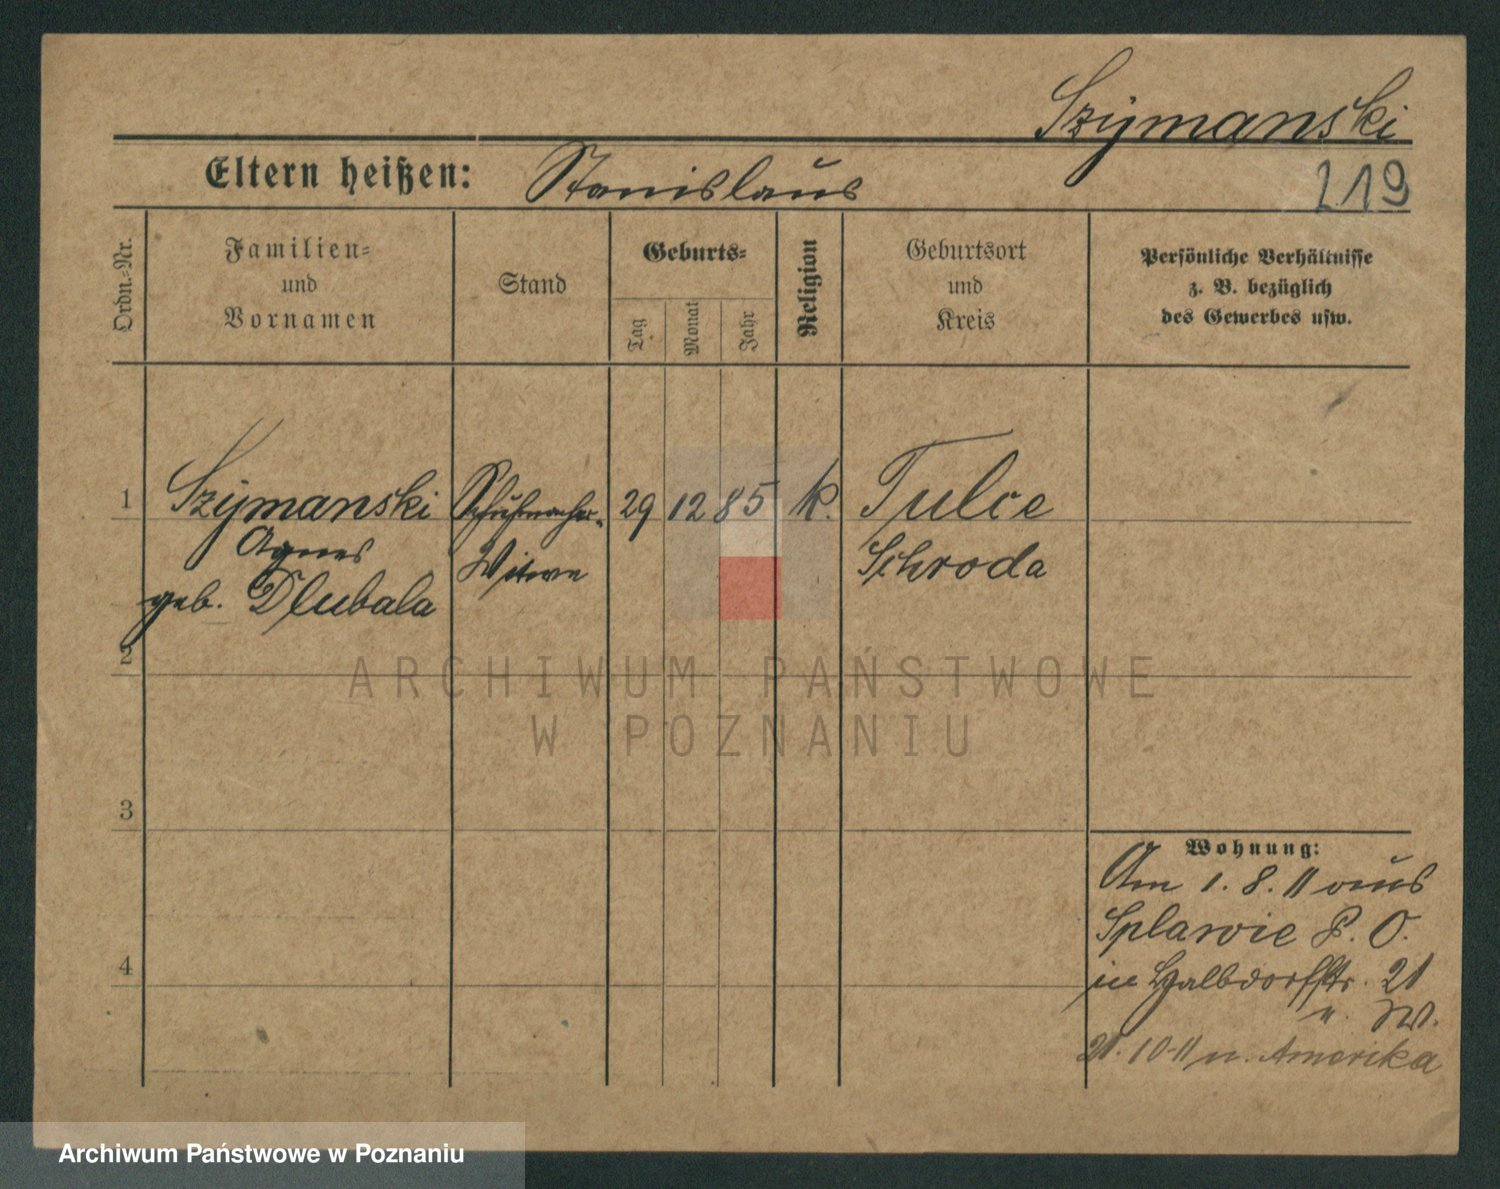 Szymanski
Eltern heißen: Stanislaus
219
Ordn.-Nr.
Familien-
und
Vornamen
Stand
Geburts-
Tag
Monat
Jahr
Religion
Geburtsort
und
Kreis
Persönliche Verhältnisse
z. B. bezüglich
des Gewerbes usw.
1 Szymanski Schuhmacher- 29 12 85 k. Tulce
Agnes Witwe Schroda
geb. Dlubala
2
ARCHIWUM PAŃSTWOWE
W POZNANIU
3
4
Wohnung:
Am 1. 8. 11 aus
Splawie P. O.
in Halbdorfstr. 21
21. 10 11 n. Amerika
Archiwum Państwowe w Poznaniu